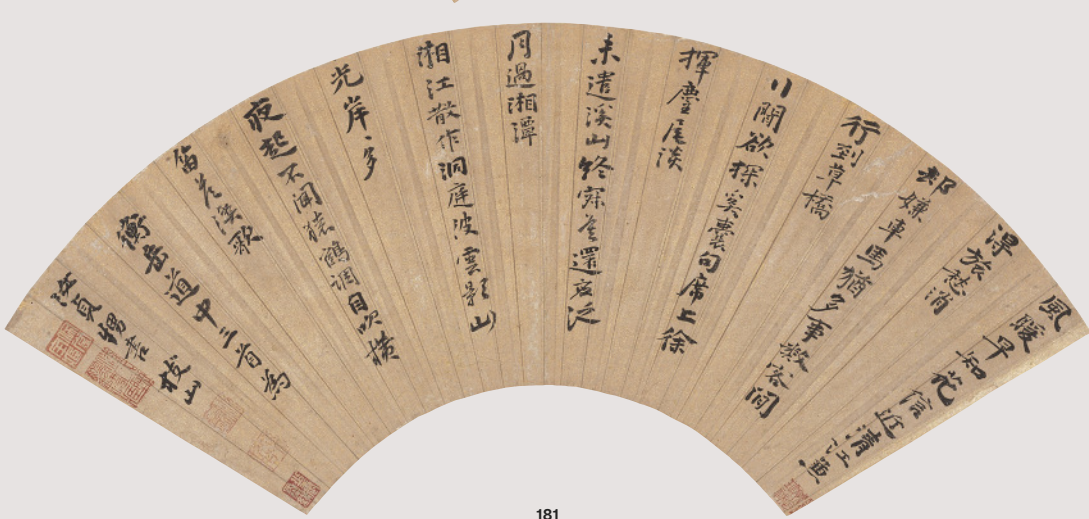 風暖早知花信近清江
得旅愁消
却嫌車馬猶多事教客間
行到草橋
小閣欲探奚囊句席上徐
揮麈尾談
未遣溪山終寂寞還泛
月過湘潭
湘江散作洞庭波雲影山
光岸〻多
夜起不聞猿鶴調自吹橫
笛答漁歌
衡岳道中三首為
汝貞甥書
枝山
181